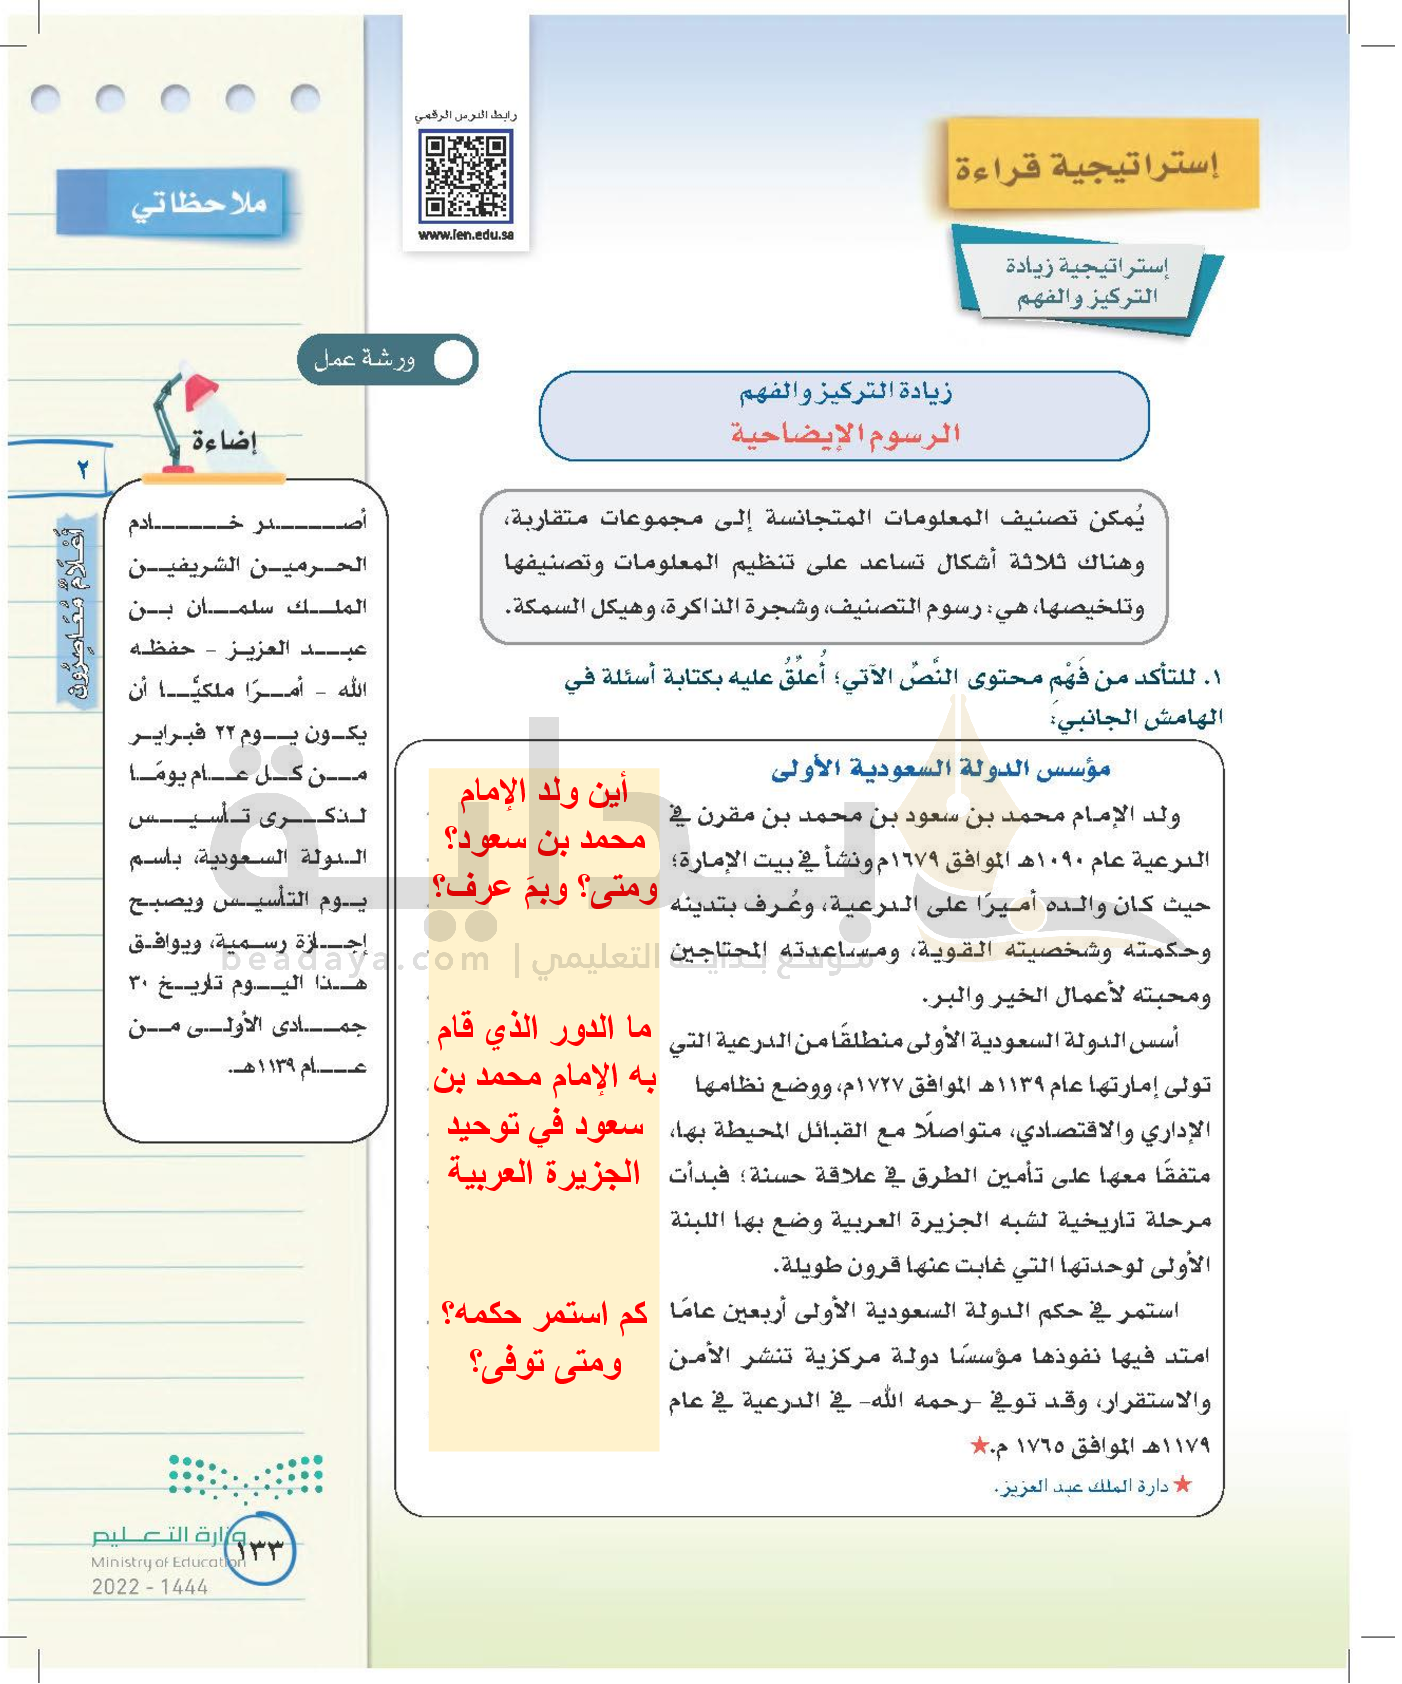 رابط الدرس الرقمي
www.ien.edu.sa
إستراتيجية قراءة
إستراتيجية زيادة
التركيز والفهم
ملاحظاتي
ورشة عمل
زيادة التركيز والفهم
الرسوم الإيضاحية
يُمكن تصنيف المعلومات المتجانسة إلى مجموعات متقاربة،
وهناك ثلاثة أشكال تساعد على تنظيم المعلومات وتصنيفها
وتلخيصها، هي: رسوم التصنيف، وشجرة الذاكرة، وهيكل السمكة.
١. للتأكد من فَهْم محتوى النَّصِّ الآتي؛ أُعلِّقُ عليه بكتابة أسئلة في
الهامش الجانبي:
مؤسس الدولة السعودية الأولى
ولد الإمام محمد بن سعود بن محمد بن مقرن في
الدرعية عام ١٠٩٠هـ الموافق ١٦٧٩م ونشأ في بيت الإمارة؛
حيث كان والده أميرًا على الدرعية، وعُرف بتدينه
وحكمته وشخصيته القوية، ومساعدته المحتاجين
ومحبته لأعمال الخير والبر.
أسس الدولة السعودية الأولى منطلقًا من الدرعية التي
تولى إمارتها عام ١١٣٩هـ الموافق ١٧٢٧م، ووضع نظامها
الإداري والاقتصادي، متواصلًا مع القبائل المحيطة بها،
متفقًا معها على تأمين الطرق في علاقة حسنة؛ فبدأت
مرحلة تاريخية لشبه الجزيرة العربية وضع بها اللبنة
الأولى لوحدتها التي غابت عنها قرون طويلة.
استمر في حكم الدولة السعودية الأولى أربعين عامًا
امتد فيها نفوذها مؤسسًا دولة مركزية تنشر الأمن
والاستقرار، وقد توفي -رحمه الله- في الدرعية في عام
١١٧٩هـ الموافق ١٧٦٥ م.★
★ دارة الملك عبد العزيز.
أين ولد الإمام
محمد بن سعود؟
ومتى؟ وبمَ عرف؟
ما الدور الذي قام
به الإمام محمد بن
سعود في توحيد
الجزيرة العربية
كم استمر حكمه؟
ومتى توفى؟
إضاءة
أصدر خادم
الحرمين الشريفين
الملك سلمان بن
عبد العزيز - حفظه
الله - أمرًا ملكيًّا أن
يكون يوم ٢٢ فبراير
من كل عام يومًا
لذكرى تأسيس
الدولة السعودية، باسم
يوم التأسيس ويصبح
إجازة رسمية، ويوافق
هذا اليوم تاريخ ٣٠
جمادى الأولى من
عام ١١٣٩هـ.
٢
أَعْلَامٌ مُعَاصِرُون
بداية
beadaya.com | موقع بداية التعليمي
وزارة التعليم
Ministry of Education
2022 - 1444
١٣٣